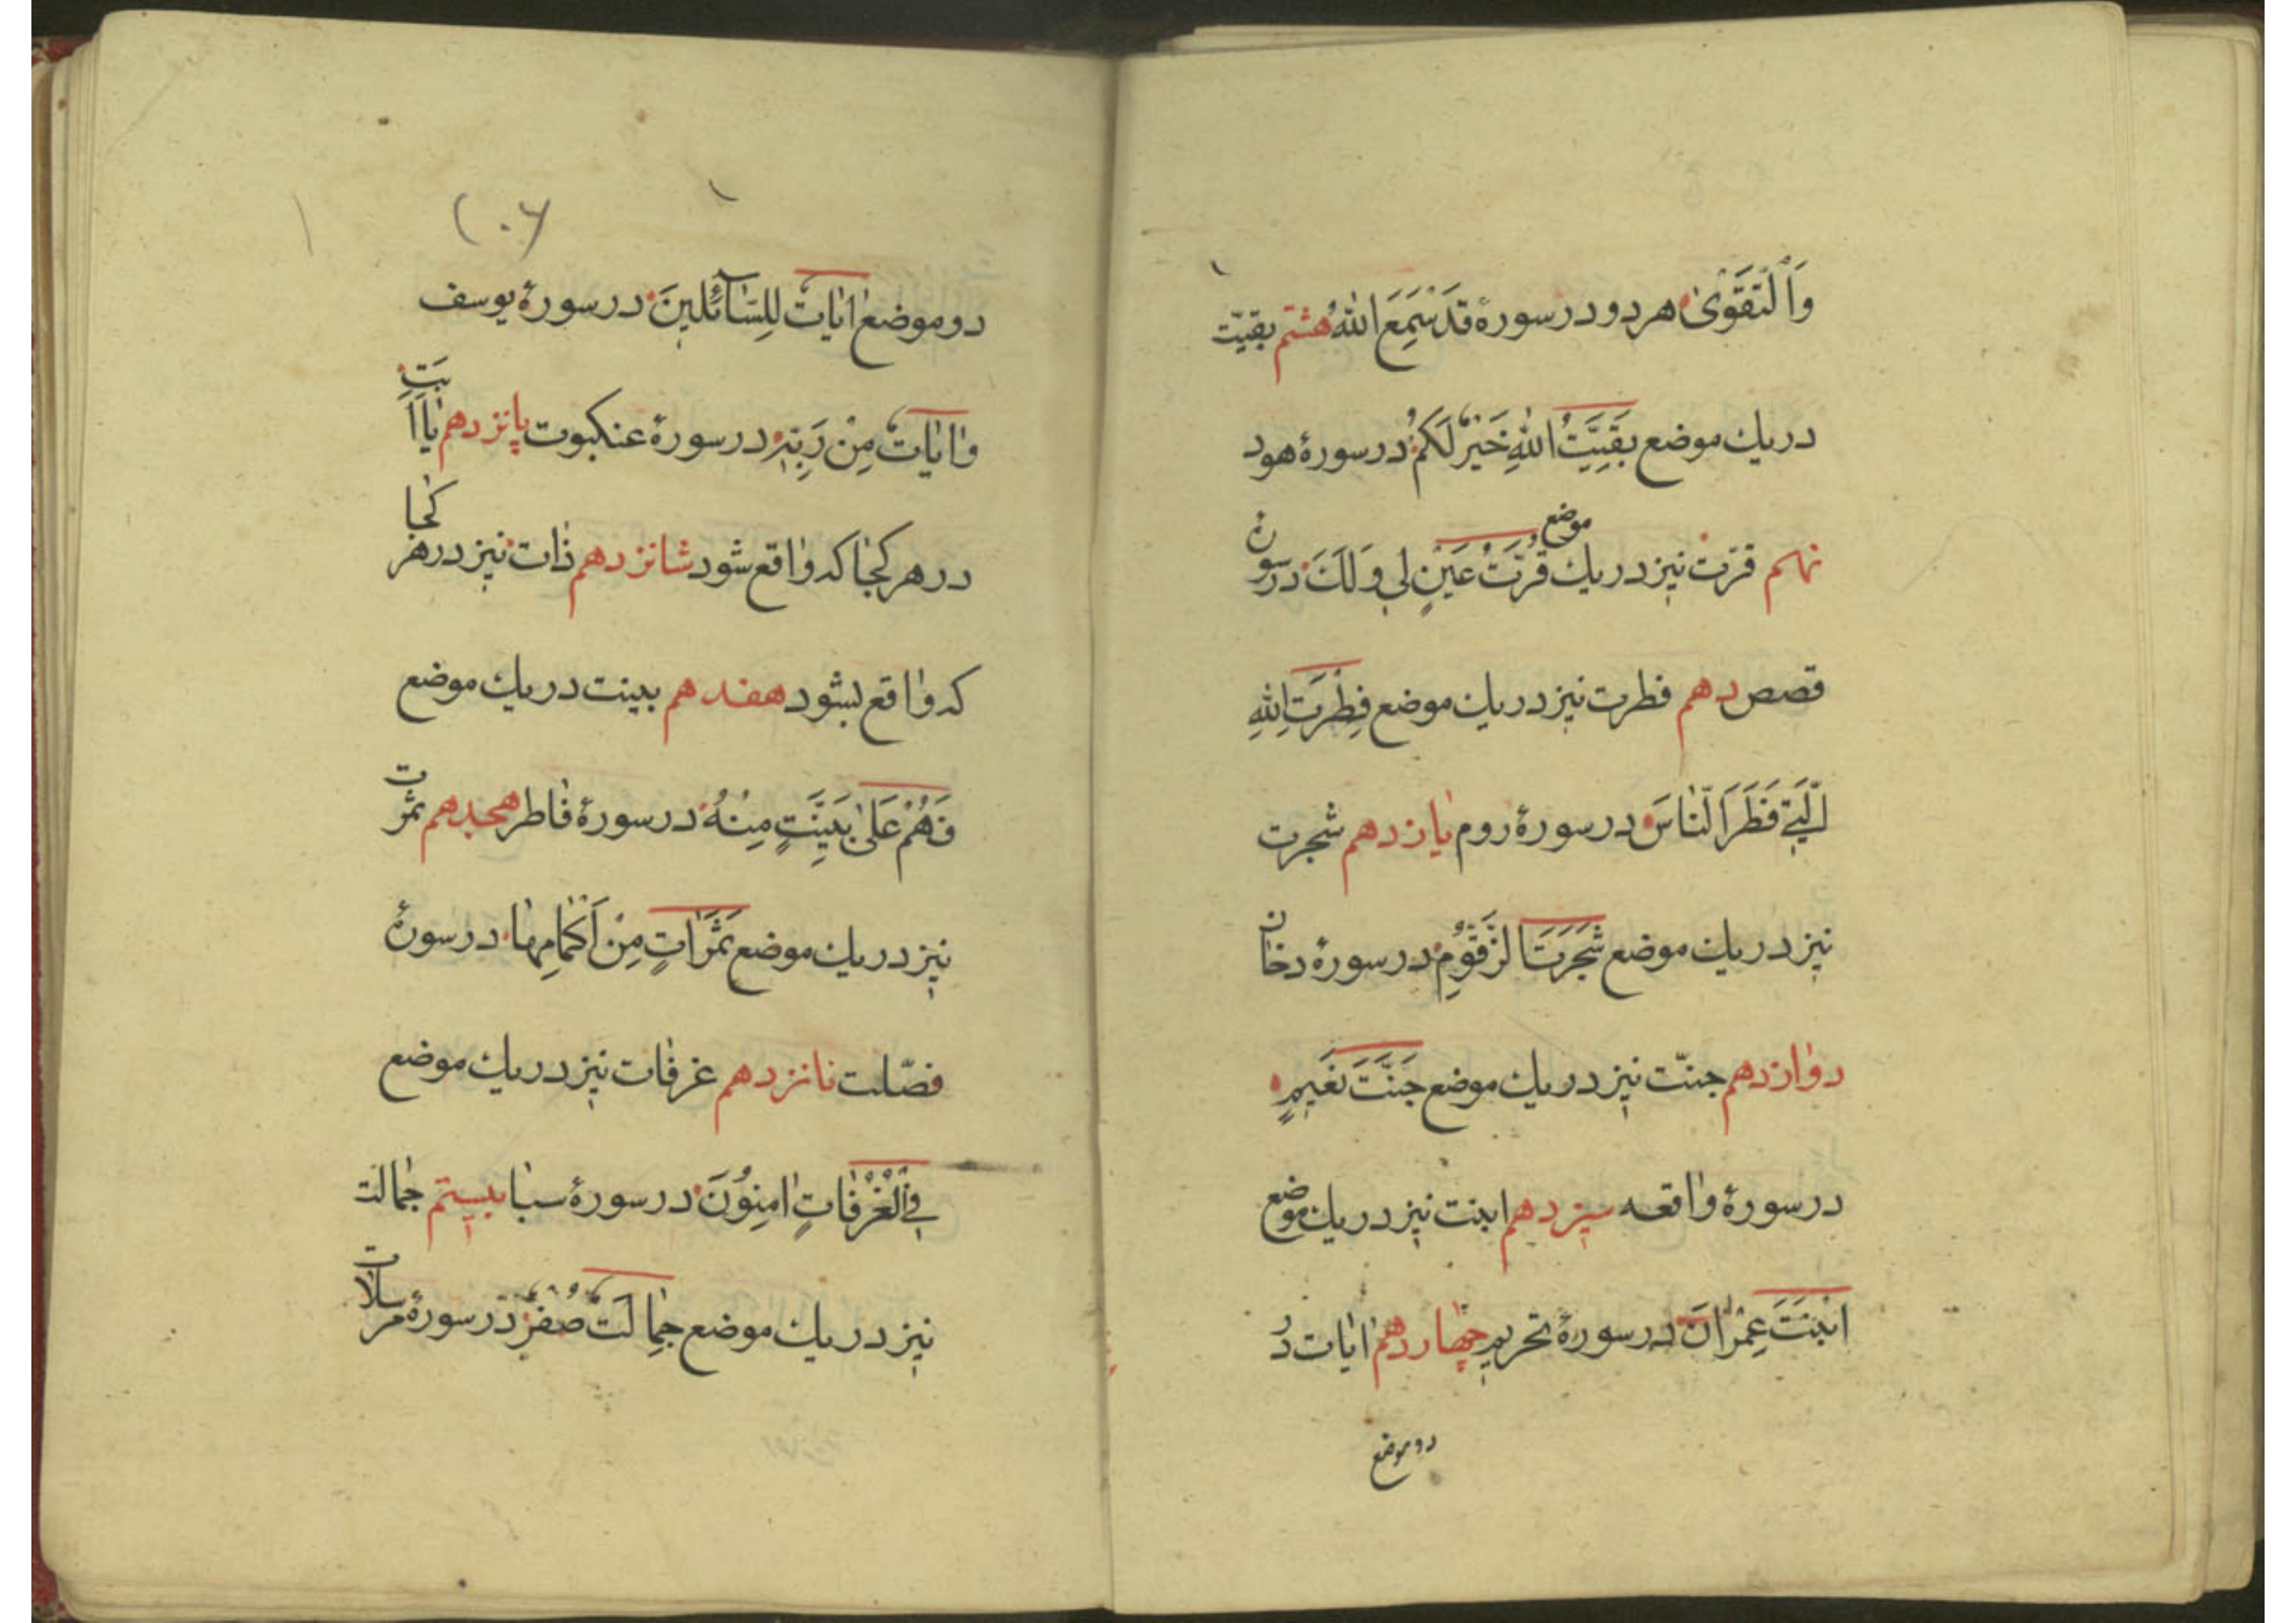 وَالتَّقْوٰى هر دو در سورهٔ قَدْ سَمِعَ اللهُ هشتم بقیّت
در یك موضع بَقِیَّتُ اللهِ خَیْرٌ لَكُمْ در سورهٔ هود
نهم قرّت نیز در یك موضع قُرَّتُ عَیْنٍ لِی وَلَكَ در سورهٔ
قصص دهم فطرت نیز در یك موضع فِطْرَتَ اللهِ
الَّتِی فَطَرَ النَّاسَ در سورهٔ روم یازدهم شجرت
نیز در یك موضع شَجَرَتَ الزَّقُّومِ در سورهٔ دخان
دوازدهم جنّت نیز در یك موضع جَنَّتَ نَعِیمٍ
در سورهٔ واقعه سیزدهم ابنت نیز در یك موضع
ابْنَتَ عِمْرٰانَ در سورهٔ تحریم چهاردهم ایٰات در
دو موضع
دو موضع اٰیٰاتٌ لِلسَّآئِلِینَ در سورهٔ یوسف
وَاٰیٰاتٌ مِنْ رَبِّهِ در سورهٔ عنکبوت پانزدهم یٰا اَبَتِ
در هر کجٰا که وٰاقع شود شانزدهم ذٰات نیز در هر کجٰا
که وٰاقع بشود هفدهم بینت در یك موضع
فَهُمْ عَلٰى بَیِّنَتٍ مِنْهُ در سورهٔ فٰاطر هجدهم ثمرت
نیز در یك موضع ثَمَرٰاتٍ مِنْ اَكْمٰامِهٰا در سورهٔ
فصّلت نانزدهم غرفٰات نیز در یك موضع
فِی الْغُرْفٰاتِ اٰمِنُونَ در سورهٔ سبٰا بیستم جمٰالت
نیز در یك موضع جِمٰالَتٌ صُفْرٌ در سورهٔ مرسلات